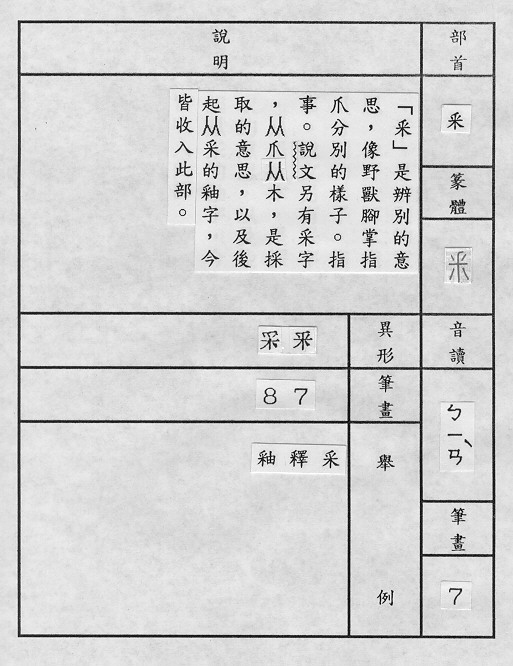 部首
釆
篆體
音讀
ㄅㄧㄢˋ
筆畫
7
說明
「釆」是辨別的意
思,像野獸腳掌指
爪分別的樣子。指
事。說文另有采字
,从爪从木,是採
取的意思,以及後
起从采的釉字,今
皆收入此部。
異形
釆 采
筆畫
7 8
舉例
采 釋 釉